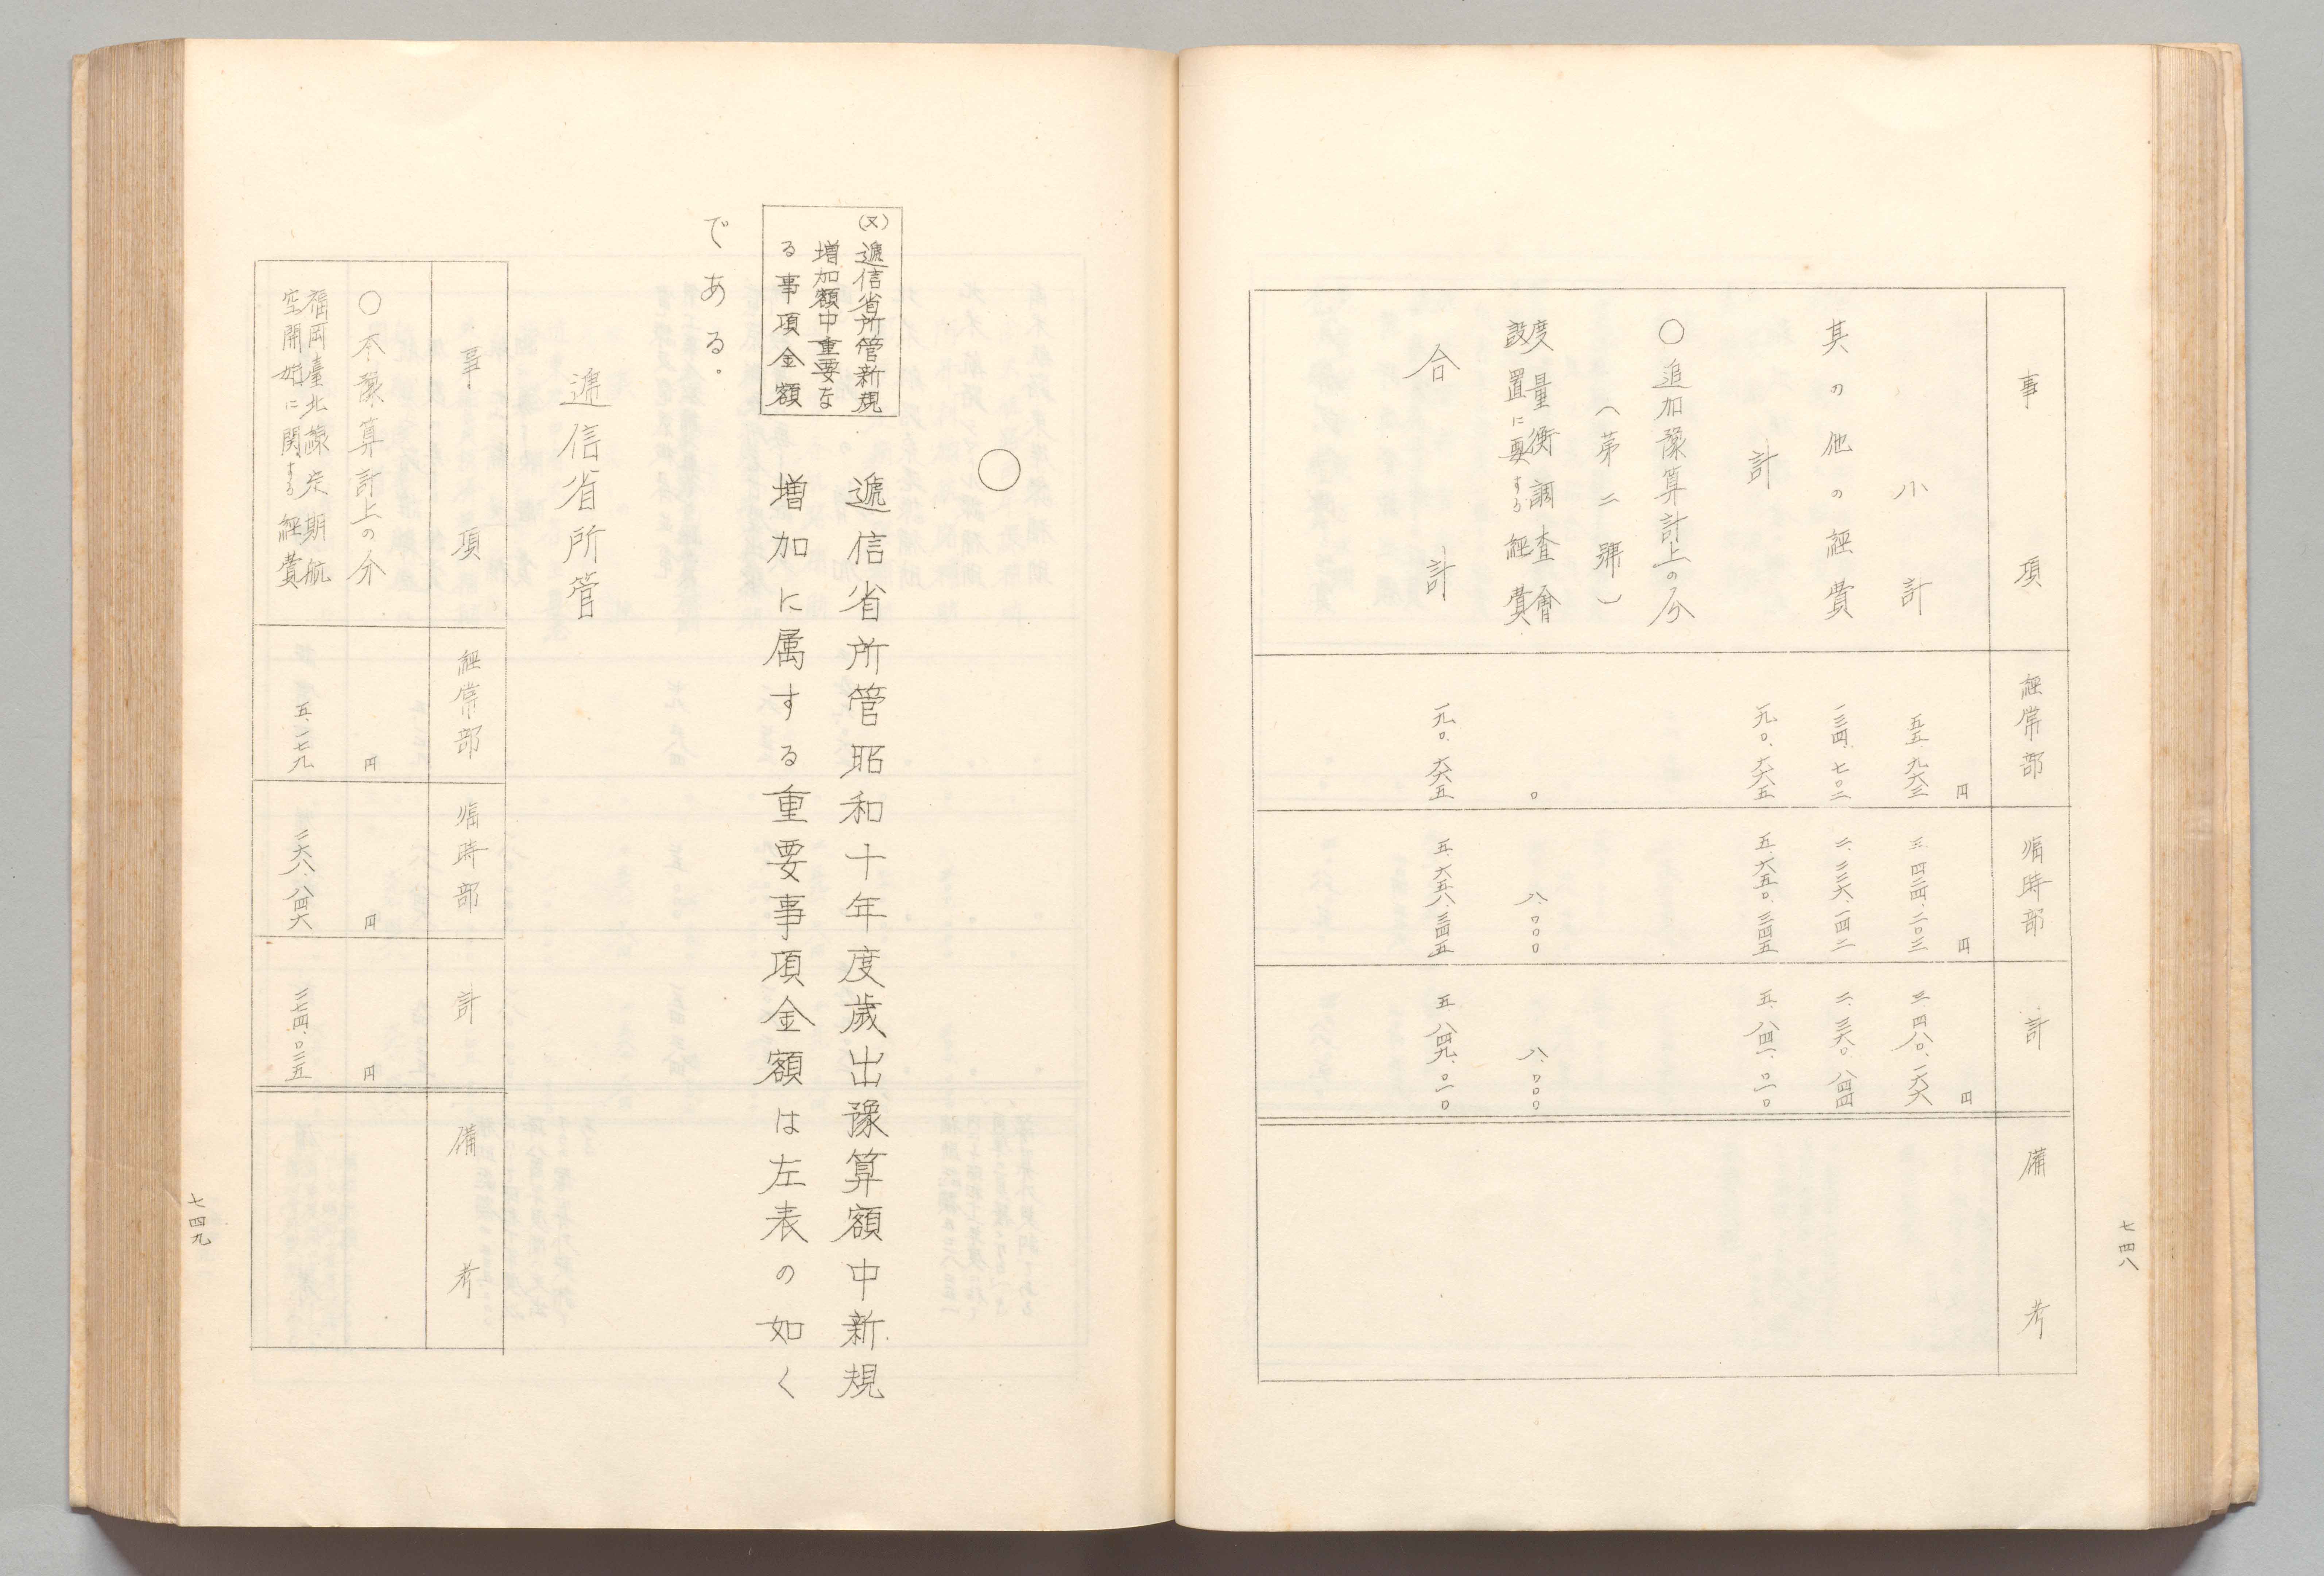 事項 經常部 臨時部 計 備考
円 円 円
小計 五五、九六三 三、四二四、二〇三 三、四八〇、一六六
其の他の經費 一三四、七〇二 二、二二六、一四二 二、三六〇、八四四
計 一九〇、六六五 五、六五〇、三四五 五、八四一、〇一〇
〇追加豫算計上の分
（第二號）
度量衡調査會
設置に要する經費 〇 八、〇〇〇 八、〇〇〇
合計 一九〇、六六五 五、六五八、三四五 五、八四九、〇一〇
七四八
〇
(ヌ)遞信省所管新規
増加額中重要な
る事項金額
遞信省所管昭和十年度歳出豫算額中新規
増加に属する重要事項金額は左表の如く
である。
遞信省所管
事項 經常部 臨時部 計 備考
〇本豫算計上の分 円 円 円
福岡臺北線定期航
空開始に関する經費 五、一七九 二六八、八四六 二七四、〇二五
七四九